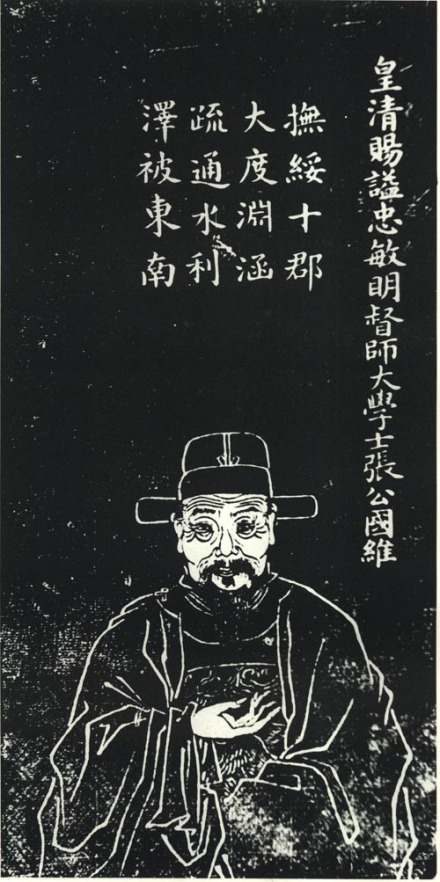 皇清賜謚忠敏明督師大學士張公國維
撫綏十郡
大度淵涵
疏通水利
澤被東南